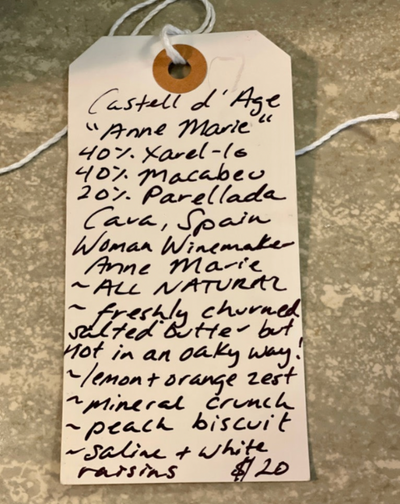 Castell d' Age
"Anne Marie"
40% Xarel-lo
40% Macabeu
20% Parellada
Cava, Spain
Woman Winemaker
Anne Marie
~ ALL NATURAL
~ freshly churned
salted butter but
not in an oaky way!
~ lemon + orange zest
~ mineral crunch
~ peach biscuit
~ saline + white
raisins $20